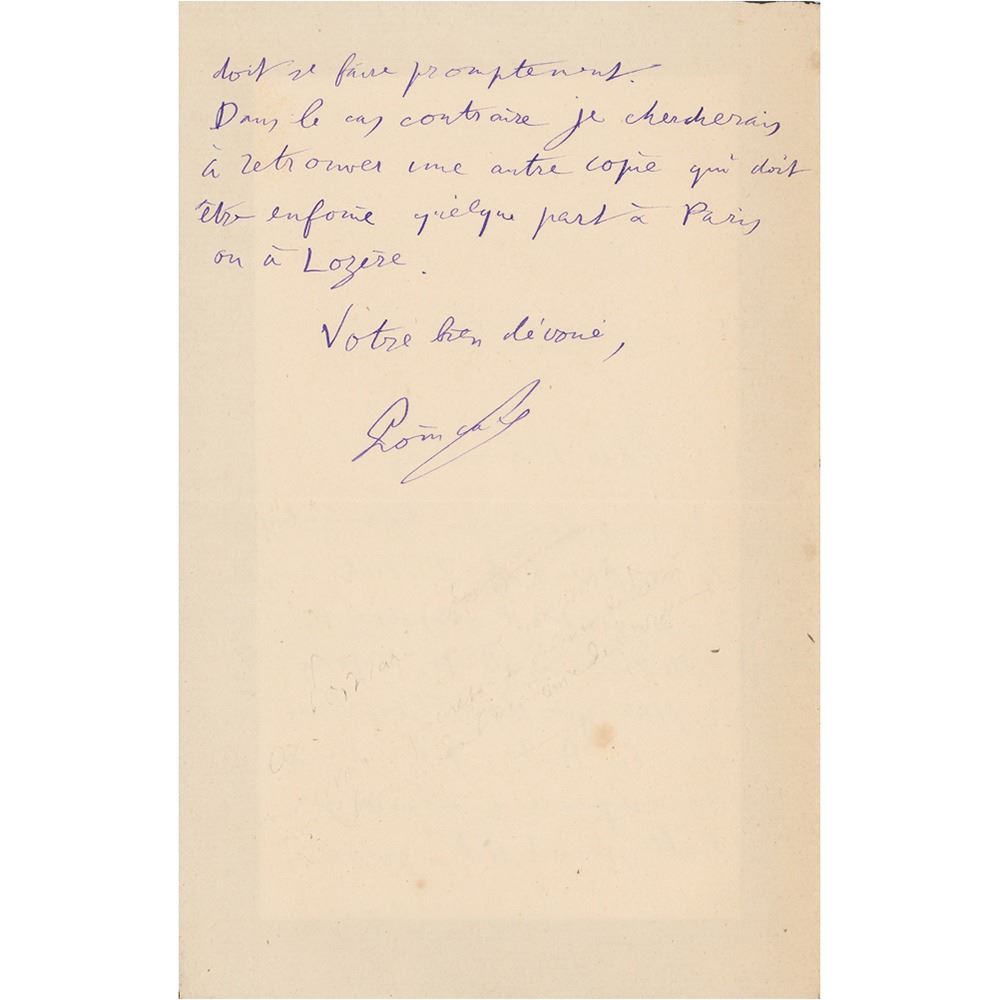 doit se faire promptement.
Dans le cas contraire je chercherais
à retrouver une autre copie qui doit
être enfouie quelque part à Paris
ou à Lozère.
Votre bien dévoué,
Poincaré